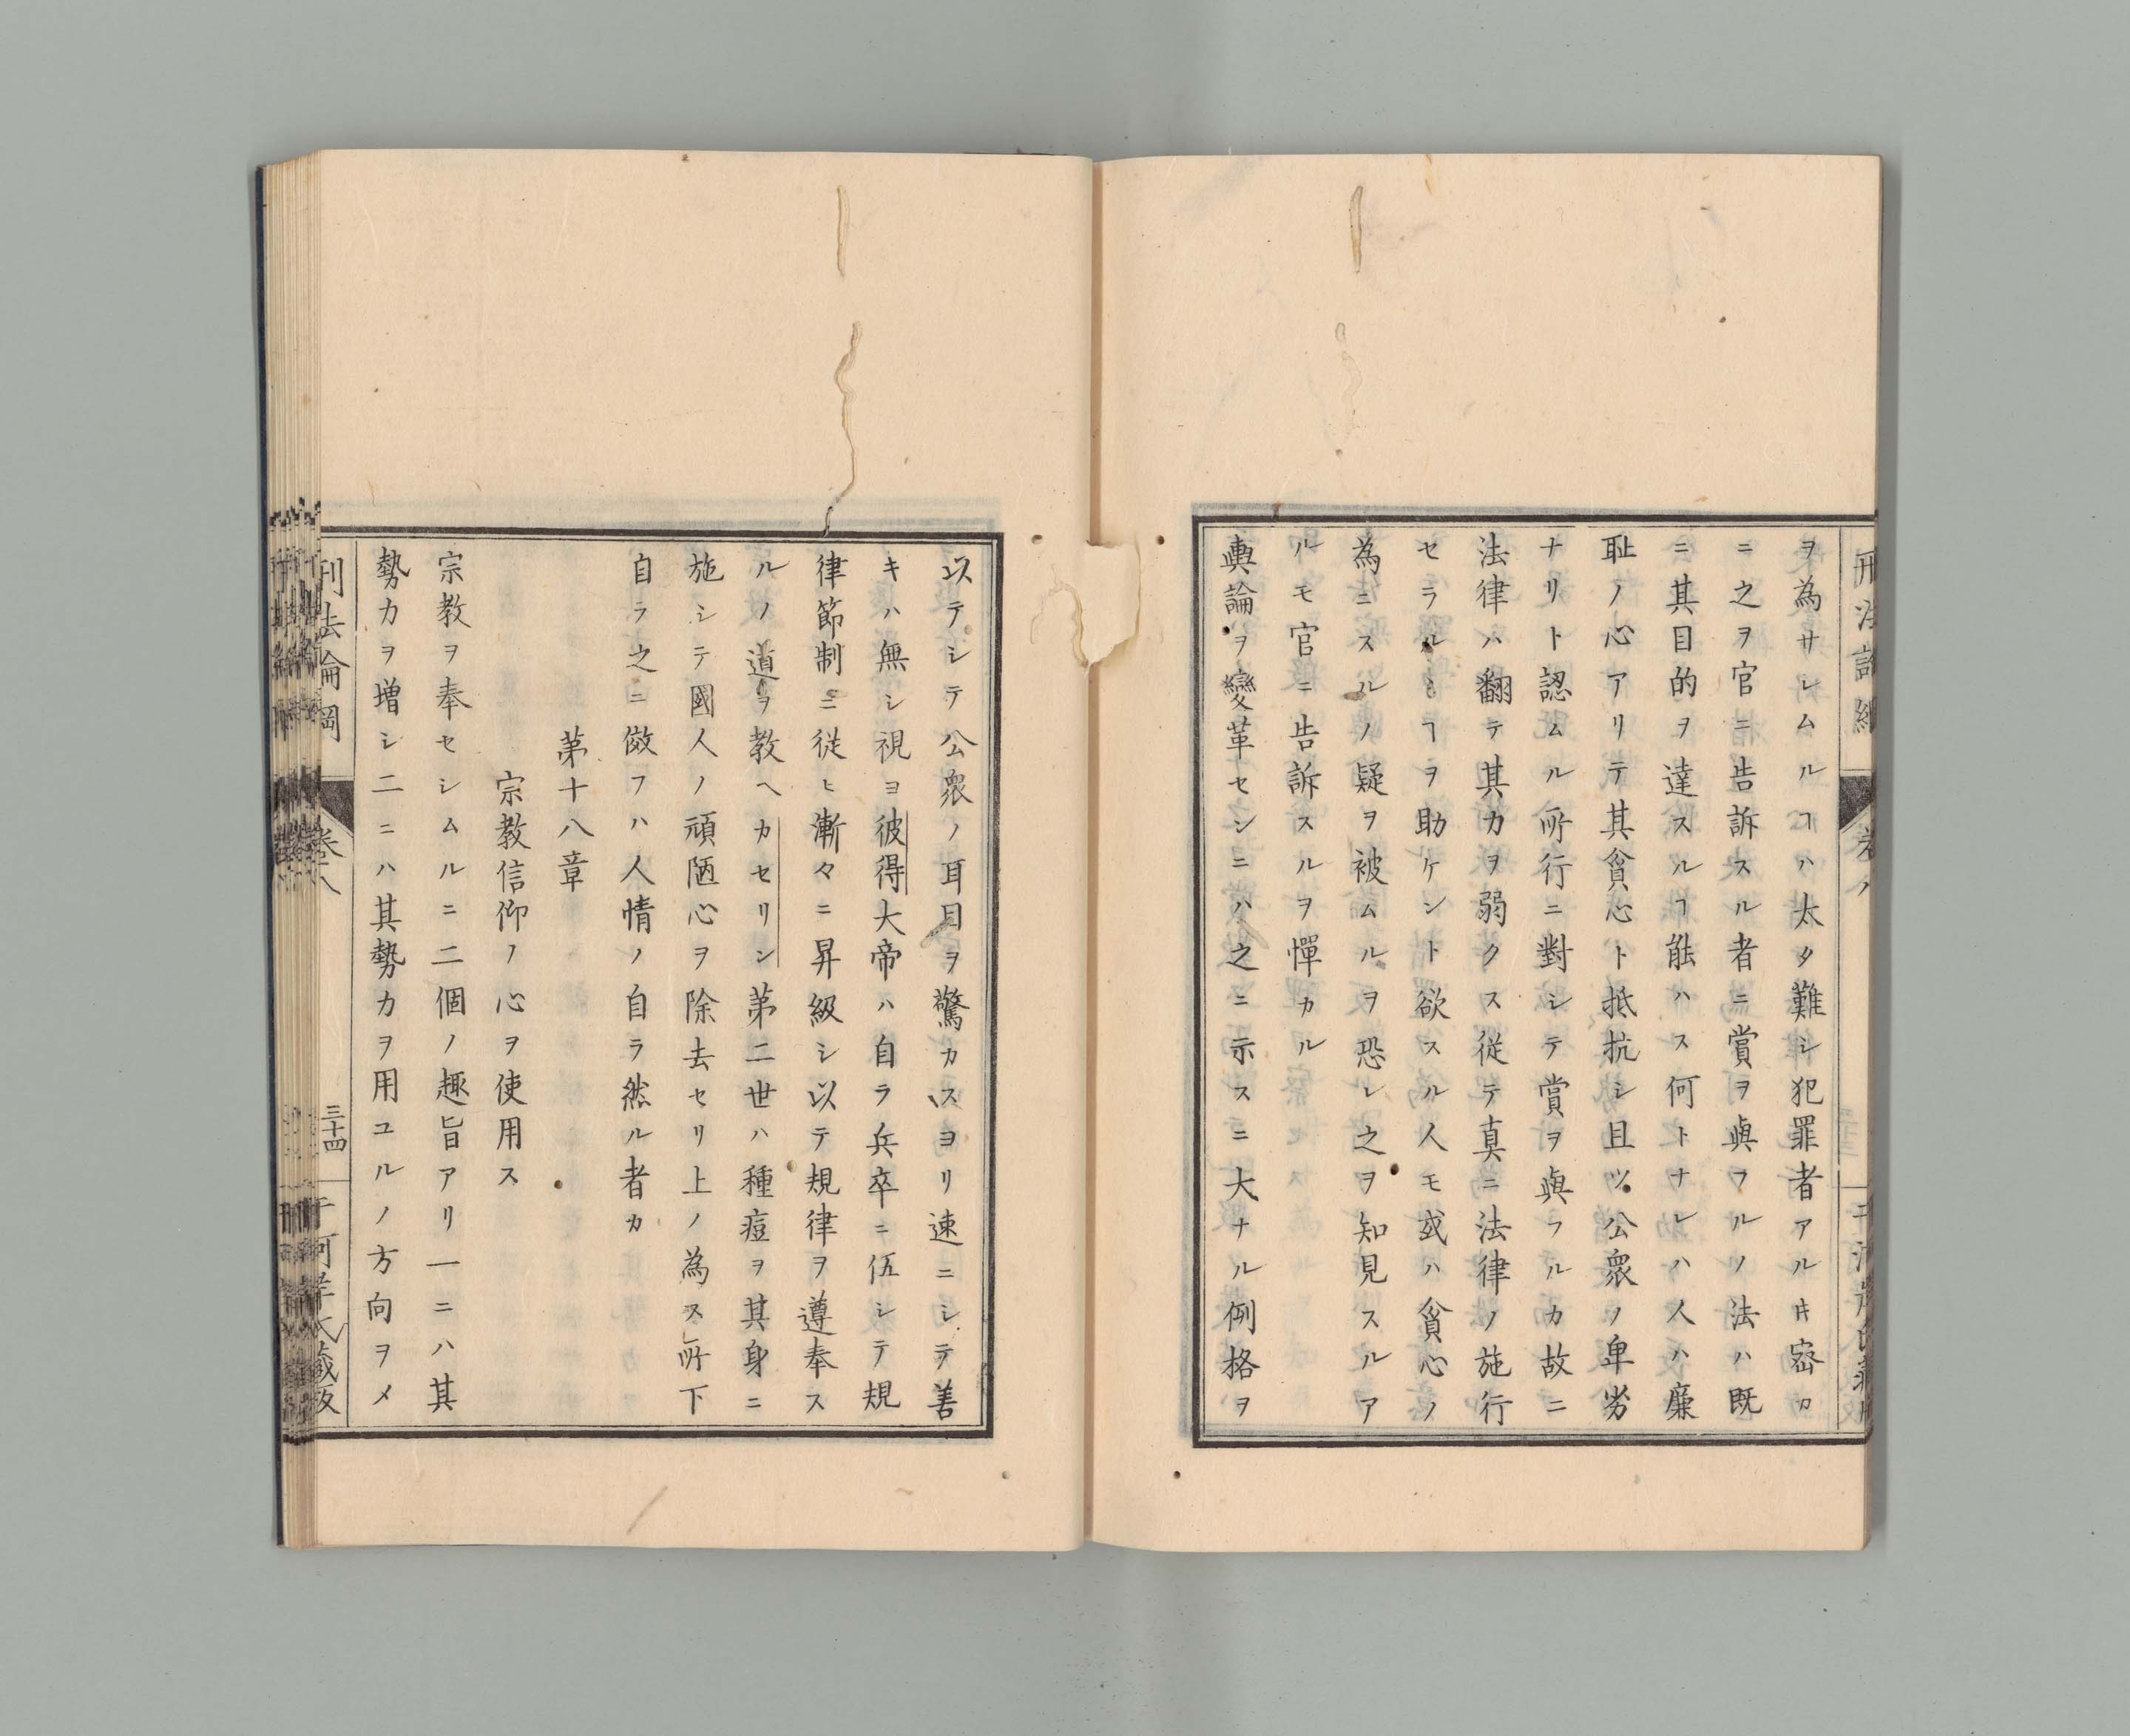 ヲ為サシムルヿハ太タ難シ犯罪者アルキ密カ
ニ之ヲ官ニ告訴スル者ニ賞ヲ與フルノ法ハ既
ニ其目的ヲ達スルヿ能ハス何トナレハ人ハ廉
耻ノ心アリテ其貧心ト抵抗シ且ツ公衆ノ卑劣
ナリト認ムル所行ニ對シテ賞ヲ與フルカ故ニ
法律ハ翻テ其力ヲ弱クス従テ真ニ法律ノ施行
セラルヽヿヲ助ケント欲スル人モ或ハ貧心ノ
為ニスルノ疑ヲ被ムルヲ恐レ之ヲ知見スルア
ルモ官ニ告訴スルヲ憚カル
輿論ヲ變革センニハ之ニ示スニ大ナル例格ヲ
以テシテ公衆ノ耳目ヲ驚カスヨリ速ニシテ善
キハ無シ視ヨ彼得大帝ハ自ラ兵卒ニ伍シテ規
律節制ニ従ヒ漸々ニ昇級シ以テ規律ヲ遵奉ス
ルノ道ヲ教ヘカセリン第二世ハ種痘ヲ其身ニ
施シテ國人ノ頑陋心ヲ除去セリ上ノ為ス所下
自ラ之ニ傚フハ人情ノ自ラ然ル者カ
第十八章
宗教信仰ノ心ヲ使用ス
宗教ヲ奉セシムルニ二個ノ趣旨アリ一ニハ其
勢力ヲ増シ二ニハ其勢力ヲ用ユルノ方向ヲメ
刑法論綱
卷八
三十四
干河岸氏藏版